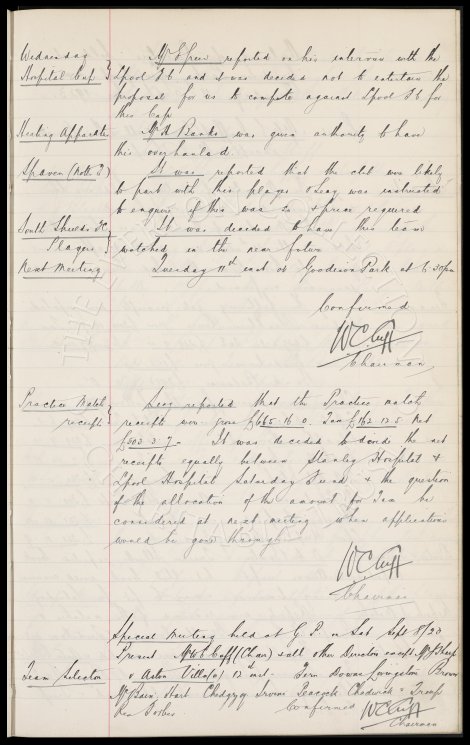 Wednesday
Hospital Cup } Mr E Green reported on his interview with the
L'pool F C and it was decided not to entertain the
proposal for us to compete against L'pool F C for
this Cup
Heating Apparatus Mr A Banks was given authority to have
this overhauled.
Spaven (Notts F) It was reported that the club was likely
to part with this player & Secy was instructed
to enquire if this was so & price required
South Shields FC It was decided to have this team
Players } watched in the near future
Next Meeting Tuesday 11th inst at Goodison Park at 6.30pm
Confirmed
W C Cuff
Chairman
Practice Match } Secy reported that the Practice match
receipts receipts were gross £665 16 0. Tax £162 12 5 Net
£503 3 7. It was decided to divide the net
receipts equally between Stanley Hospital &
L'pool Hospital Saturday Fund & the question
of the allocation of the amount for Tax be
considered at next meeting when applications
would be gone through
W C Cuff
Chairman
Special Meeting held at G. P. on Sat Sept 8/23
Present Mr W C Cuff (Chair) & all other Directors except Mr J Sharp
Team Selection v Aston Villa (a) 12th inst - Fern Downs Livingstone Brown
McBain Hart Chedgzoy Irvine Chadwick Troup
Res Forbes Confirmed W C Cuff
Chairman